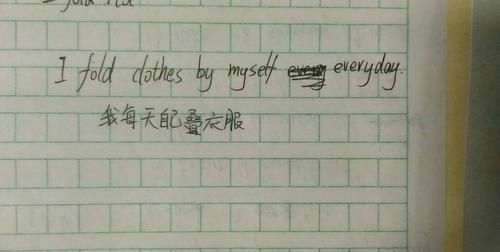 I fold clothes by myself everyday.
我每天自己叠衣服